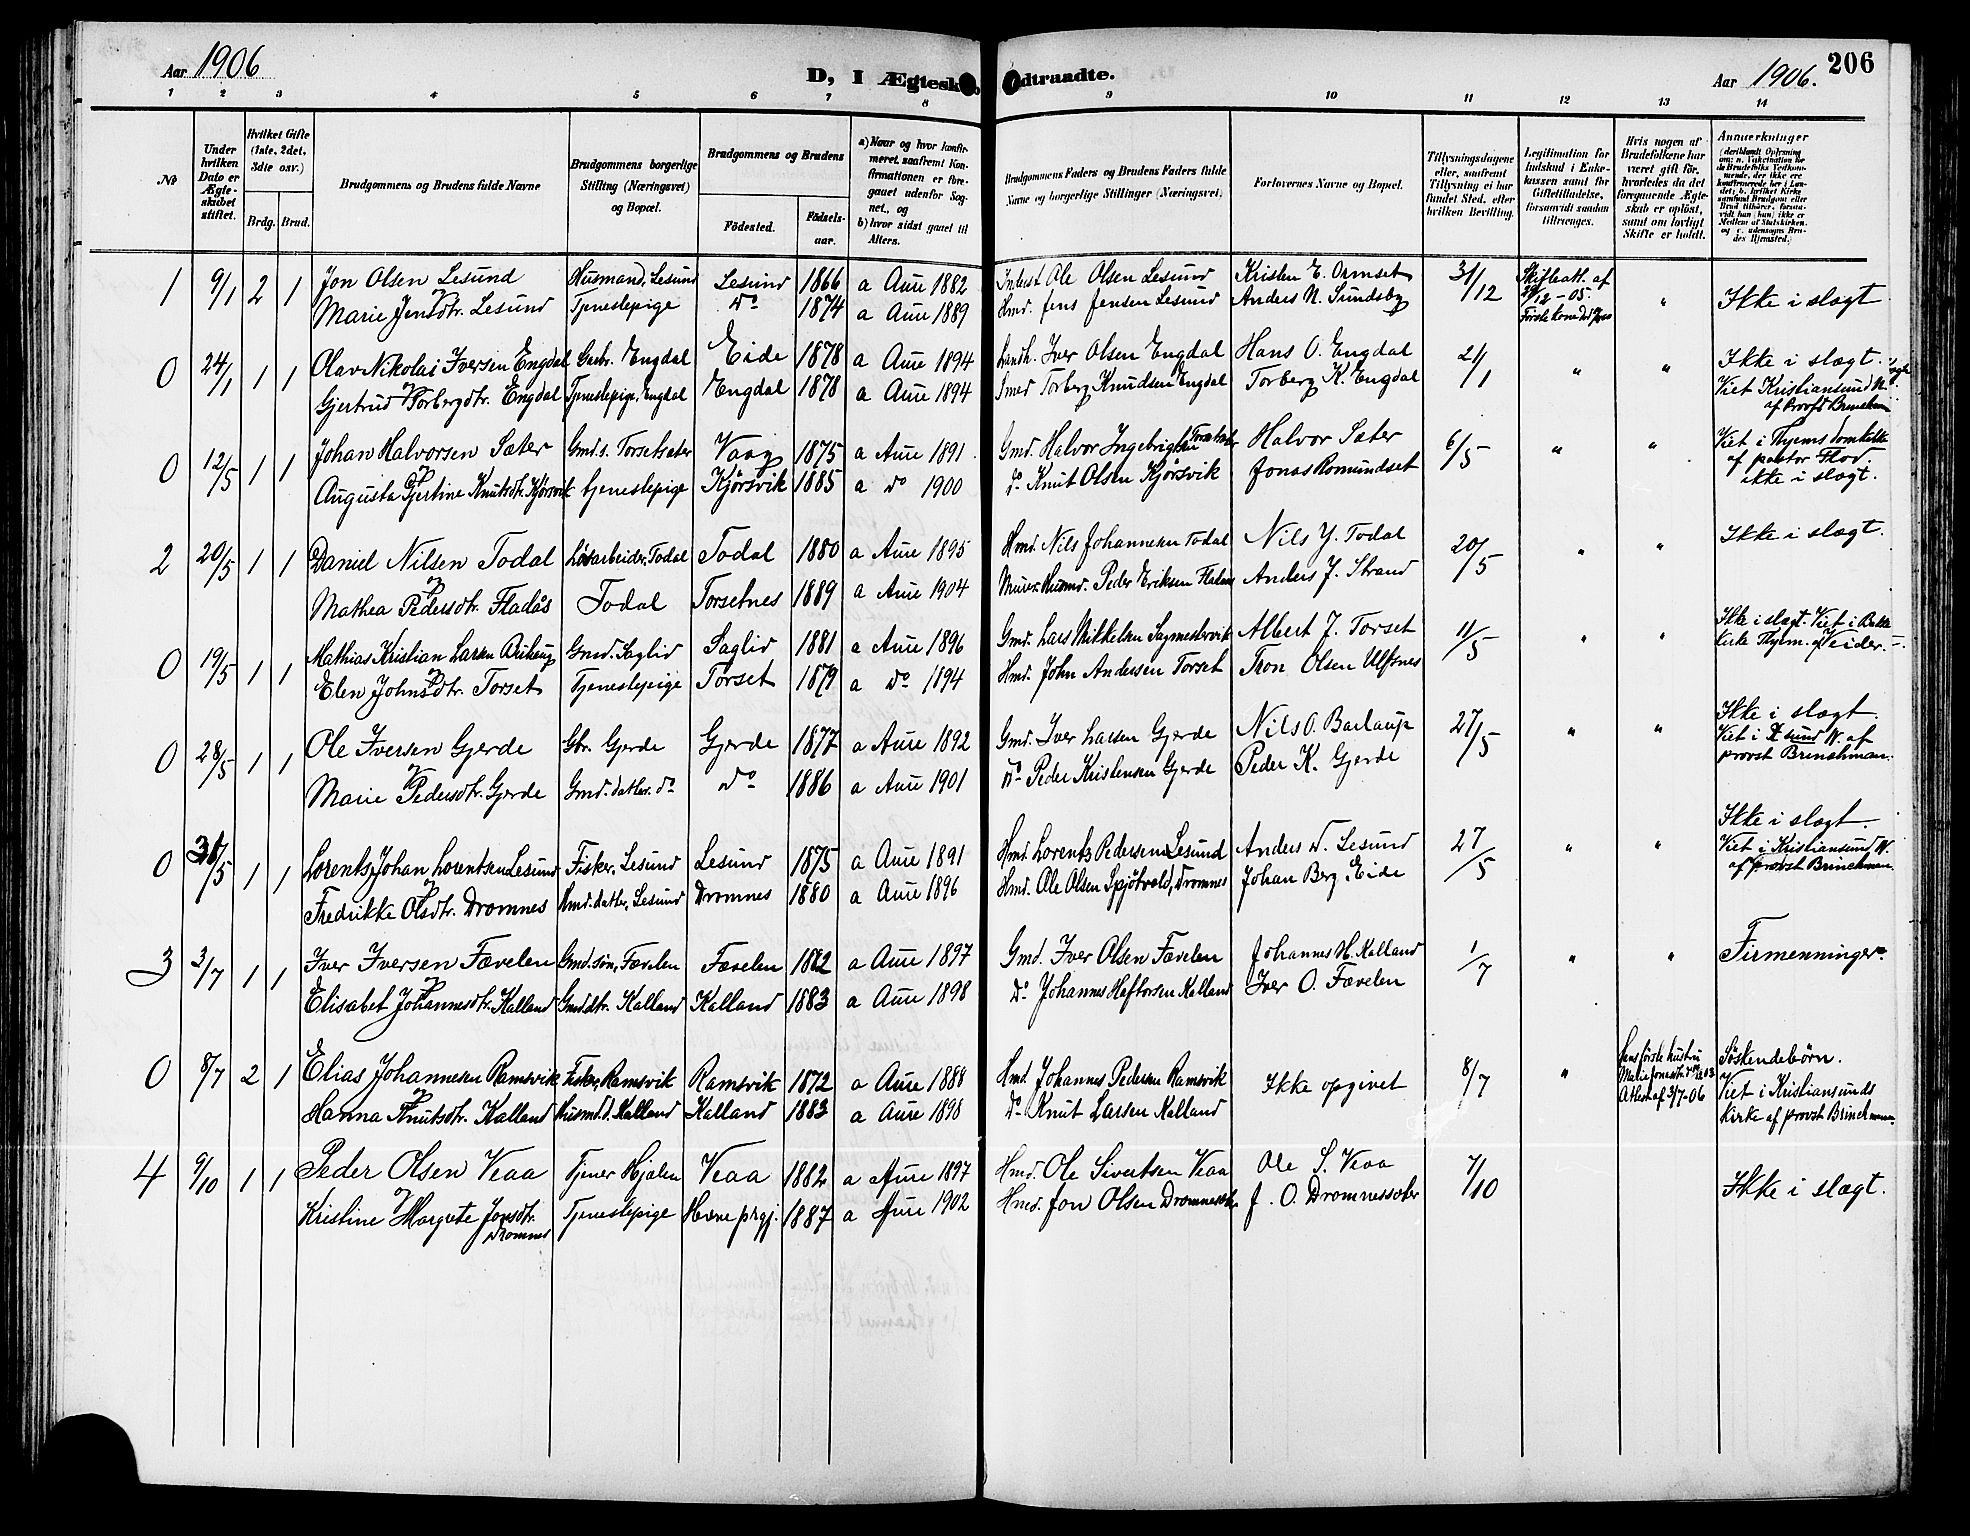 Aar 1906
D, I Ægtesk
dtraadte.
Aar 1906.
206
1 2 3 4 5 6 7 8 9 10 11 12 13 14
№
Under hvilken Dato er Ægteskabet stiftet.
Hvilket Gifte (1ste, 2det, 3die osv.)
Brdg. Brud.
Brudgommens og Brudens fulde Navne
Brudgommens borgerlige Stilling (Næringsvei) og Bopæl.
Brudgommens og Brudens
Fødested.
Fødselsaar.
a) Naar og hvor konfirmeret, saafremt Konfirmationen er foregaaet udenfor Sognet, og
b) hvor sidst gaaet til Alters.
Brudgommens Faders og Brudens Faders fulde Navne og borgerlige Stillinger (Næringsvei)
Forlovernes Navne og Bopæl.
Tillysningsdagene eller, saafremt Tillysning ei har fundet Sted, efter hvilken Bevilling.
Legitimation for Indskud i Enkekassen samt for Giftetilladelse, forsaavidt saadan tiltrænges.
Hvis nogen af Brudefolkene har været gift før, hvorledes da det foregaaende Ægteskab er opløst, samt om lovligt Skifte er holdt.
Anmærkninger
1 9/1 2 1 Jon Olsen Lesund Husmand, Lesund Lesund 1866 a Aure 1882 Inderst Ole Olsen Lesund Kristen E. Ormset 31/12 Skifteatt. af
Marie Jensdtr. Lesund Tjenestepige do 1874 a Aure 1889 Hmd. Jens Jensen Lesund Anders N. Sundsby 12 - 05. " Ikke i slægt
Første kone død
0 24/1 1 1 Olav Nikolai Iversen Engdal Garbr. Engdal Eide 1878 a Aure 1894 Landh. Iver Olsen Engdal Hans O. Engdal 21/1 " " Ikke i slægt.
Gjertrud Torbergdtr. Engdal Tjenestepige, Engdal Engdal 1878 a Aure 1894 Smed Torberg Knudsen Engdal Torberg K. Engdal Viet Kristiansund N.
af Provst Brinchman
0 12/5 1 1 Johan Halvorsen Sæter Gmd.s. Torsetsæter Vaag 1875 a Aure 1891. Gmd. Halvor Ingebrigtsen Torsetsæter Halvor Sæter 6/5 " " Viet i Thjems domkirke
Augusta Gjertine Knutsdtr. Kjørsvik tjenestepige Kjørsvik 1885 a do 1900 do Knut Olsen Kjørsvik Jonas Romundset af pastor Flod.
ikke i slægt.
2 20/5 1 1 Daniel Nilsen Todal Løsarbeider, Todal Todal 1880 a Aure 1895 Hmd. Nils Johannesen Todal Nils J. Todal 20/5 " " Ikke i slægt.
Mathea Pedersdtr. Fladås Todal Torsetnes 1889 a Aure 1904 Murer Husmd. Peder Eriksen Fladaas Anders J. Strand
0 19/5 1 1 Mathias Kristian Larsen Gmd. Saglid Saglid 1881 a Aure 1896 Gmd. Lars Mikkelsen Albert J. Torset 11/5 " " Ikke i slægt. Viet i Bakke
Elen Johnsdtr. Torset Tjenestepige Torset 1879 a do 1894 Hmd. John Andersen Torset Tron Olsen Ulfsnes kirke Thjem. af Veider.
0 28/5 1 1 Ole Iversen Gjerde Gbr. Gjerde Gjerde 1877 a Aure 1892 Gmd. Iver Larsen Gjerde Nils O. Barlaup 27/5 " " Ikke i slægt.
Marie Pedersdtr. Gjerde Gmd. datter. do do 1886 a Aure 1901 do Peder Kristensen Gjerde Peder K. Gjerde Viet i K sund N. af
provst Brinchman.
0 31/5 1 1 Lorents Johan Lorentsen Lesund Fisker, Lesund Lesund 1875 a Aure 1891 Hmd. Lorents Pedersen Lesund Anders D. Lesund 27/5 " " Ikke i slægt.
Fredrikke Olsdtr. Dromnes Hmd. datter, Lesund Dromnes 1880 a Aure 1896 Hmd. Ole Olsen Spjøtvold, Dromnes Johan Berg Eide Viet i Kristiansund N.
af provst Brinchman.
3 3/7 1 1 Iver Iversen Fævelen Gmd. søn, Fævelen Fævelen 1882 a Aure 1897 Gmd. Iver Olsen Fævelen Johannes H. Kalland 1/7 " " Firmenninger.
Elisabet Johannesdtr. Kalland Gmd.dtr. Kalland Kalland 1883 a Aure 1898 do Johannes Heftorsen Kalland Iver O. Fævelen
0 8/7 2 1 Elias Johannesen Ramsvik Fisker, Ramsvik Ramsvik 1872 a Aure 1888 Hmd. Johannes Pedersen Ramsvik Ikke opgivet 8/7 " hans første hustru Søskendebørn.
Hanna Knutsdtr. Kalland Husmd.d. Kalland Kalland 1883 a Aure 1898 do Knut Larsen Kalland Attest af 3/7-06 Viet i Kristiansunds
kirke af provst Brinchmann.
4 9/10 1 1 Peder Olsen Veaa Tjener Hjalen Veaa 1882 a Aure 1897 Hmd. Ole Sivertsen Veaa Ole S. Veaa 7/10 Ikke i slægt.
Kristine Margrete Jonsdtr. Dromnes Tjenestepige Hevne prgj. 1887 a Aure 1902 Hmd. Jon Olsen Dromnessæter J. O. Dromnessæter